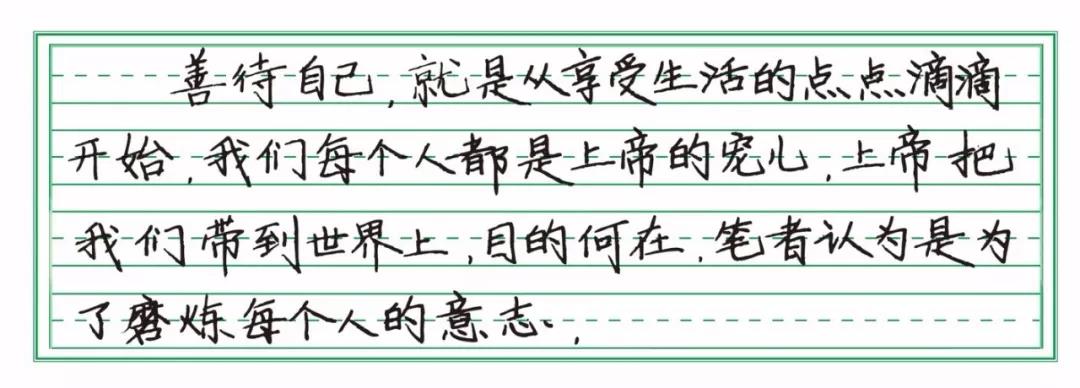 善待自己,就是从享受生活的点点滴滴
开始,我们每个人都是上帝的宠儿,上帝把
我们带到世界上,目的何在,笔者认为是为
了磨炼每个人的意志,